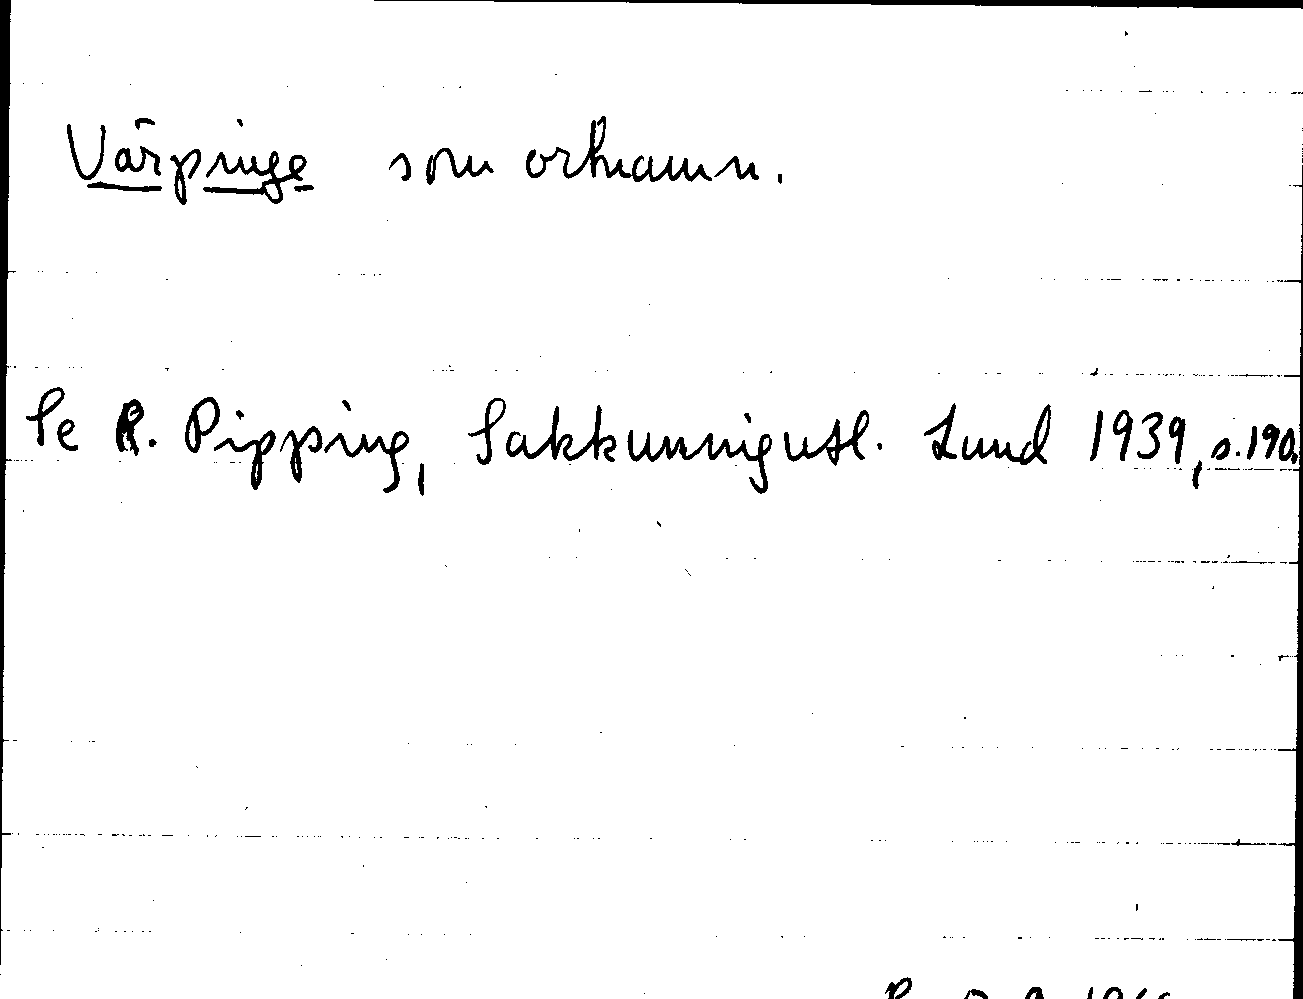 Värpinge som ortnamn.
Se R. Pipping, Sakkunnigutl. Lund 1939, s. 190.